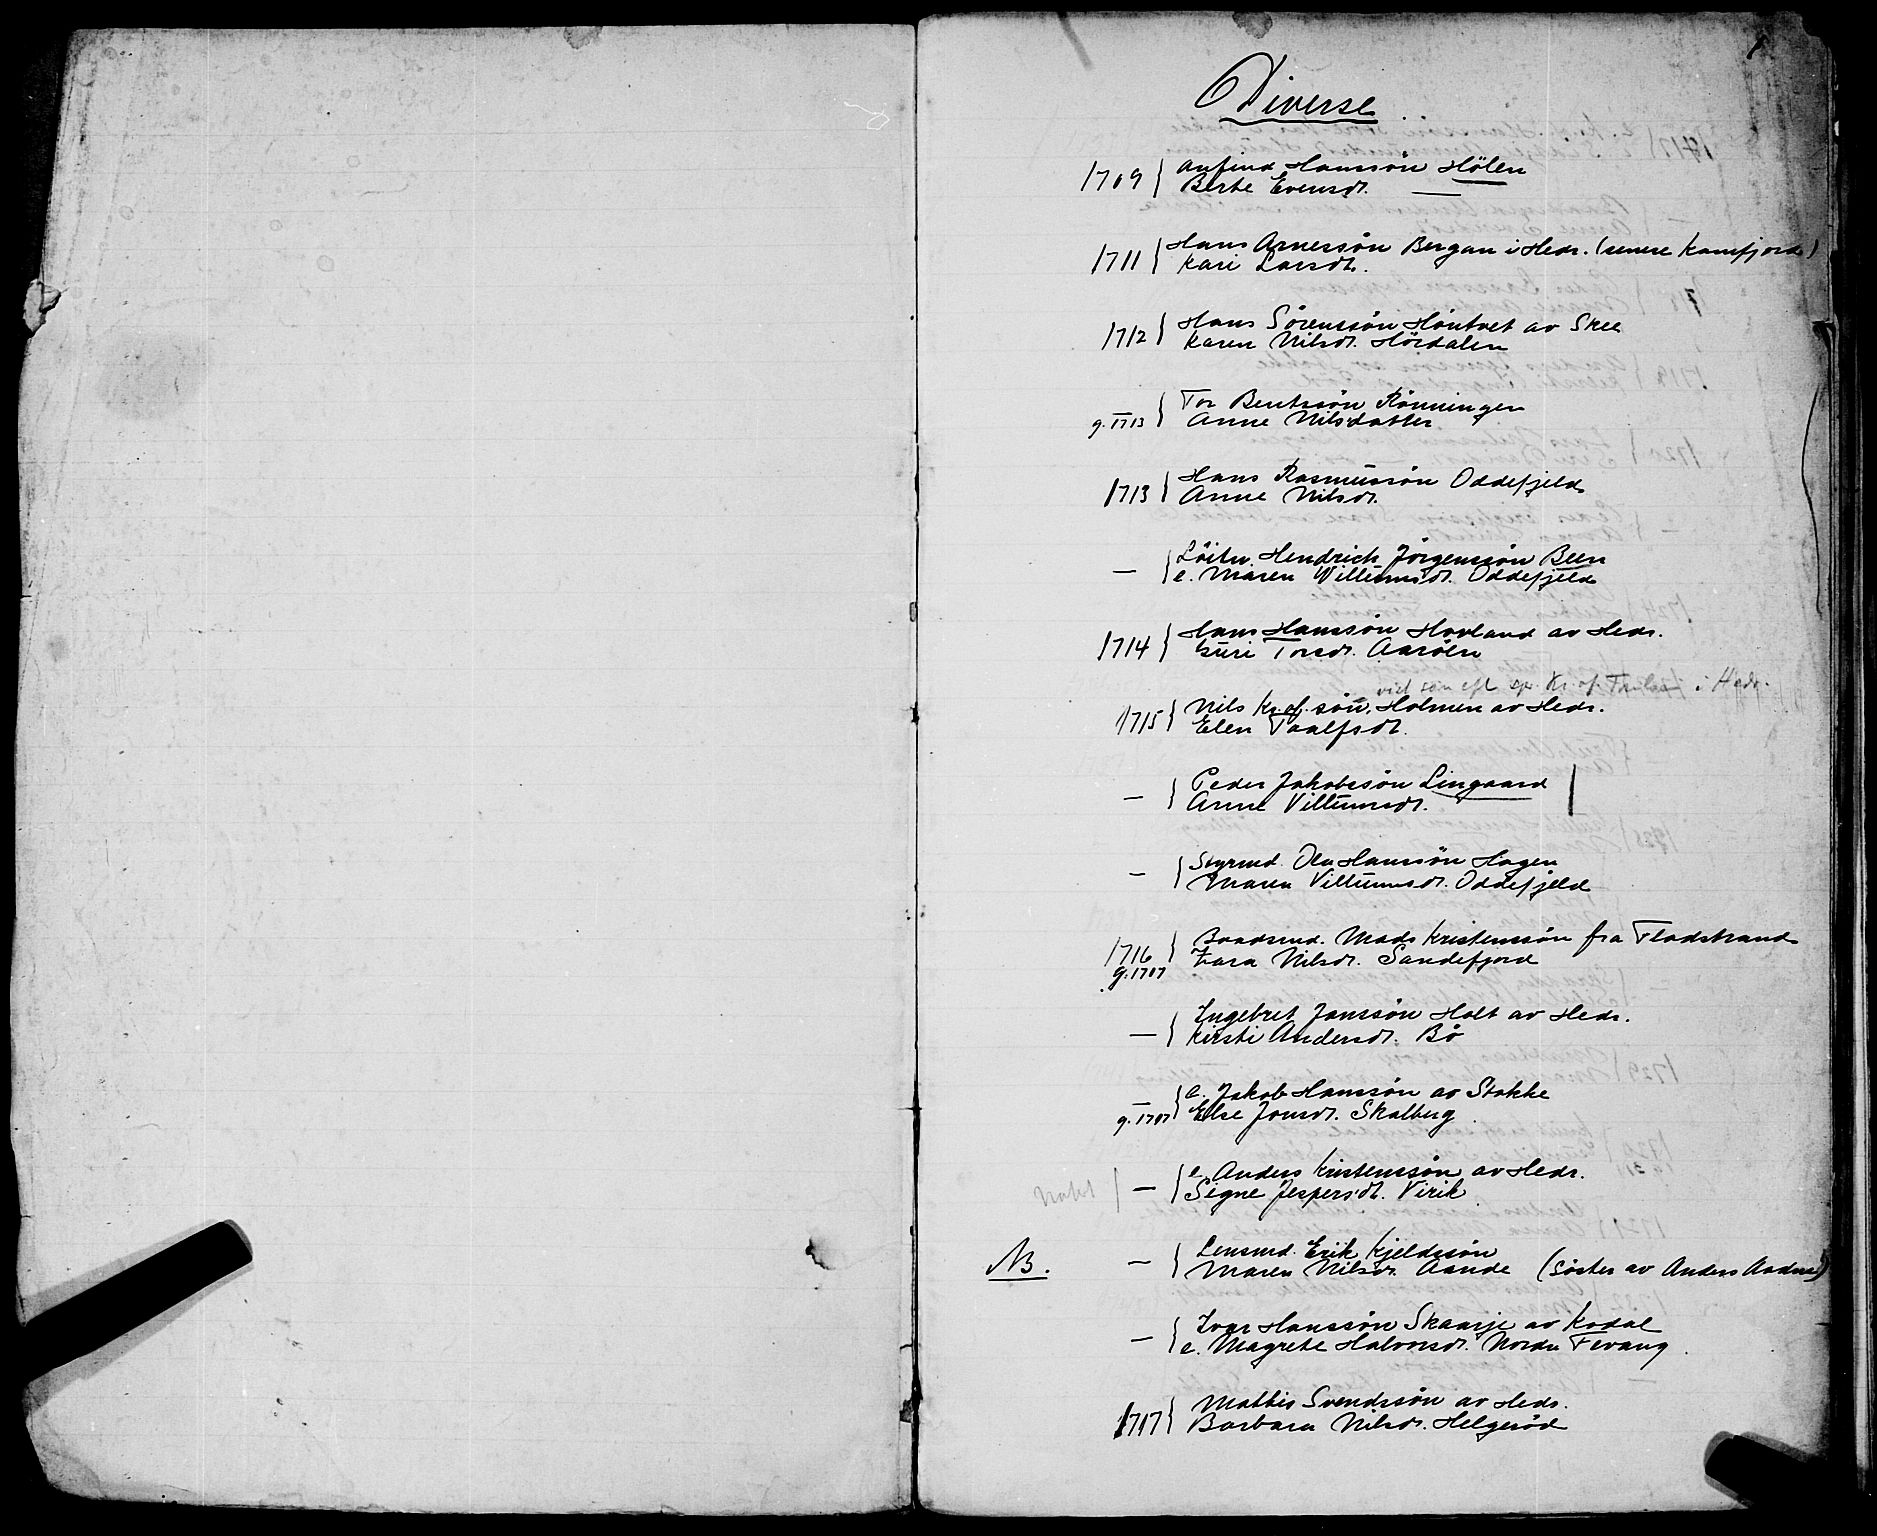 Diverse
1709 Anfind Hanssön Hölen
Berte Evensdt. —
1711 Hans Arnessön Bergan i Hedr. (senere Kamfjord)
Kari Larsdt.
1712 Hans Sörenssön Höntvet av Skee
Karen Nilsdt. Hördalen
g. 1713 Tor Bentssön Rönningen
Anne Nilsdatter
1713 Hans Rasmussön Oddefjeld
Anne Nilsdt.
— Löitn. Hendrich Jörgenssön Been
e. Maren Villumsdt. Oddefjeld
1714 Hans Hanssön Hovland av Hedr.
Guri Torsdt. Aaröen
i Hedr.
1715 Nils Kr.of.sön. Holmen av Hedr.
Elen Taalfsdt.
— Peder Jakobssön Lingaard
Anne Villumsdt.
— Styrmd. Ole Hanssön Hagen
Maren Villumsdt. Oddefjeld
1716 Baadsmd. Mads Kristenssön fra Fladstrand
g. 1707 Zara Nilsdt. Sandefjord
— Ingebret Janssön Holt av Hedr.
Kirsti Andersdt. Bö
— e. Jakob Hanssön av Stokke
g. 1707 Else Jonsdt. Skalberg
— e. Anders Kristenssön av Hedr.
Signe Jespersdt. Virik
NB. — Lensmd. Erik Kjeldssön
Maren Nilsdt. Aande (söster av Anders Aadne)
— Ivar Hanssön Skaarje av Kodal
e. Magrete Halvorsdt. Nordre Fevang
1717 Mattis Svendssön av Hedr.
Barbara Nilsdt. Helgeröd